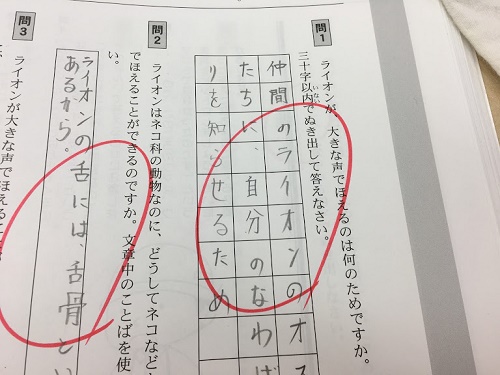 問1
ライオンが、大きな声でほえるのは何のためですか。
三十字以内でぬき出して答えなさい。
いない
仲間のライオンのオ
たちに、自分のなわば
りを知らせるため
問2
ライオンはネコ科の動物なのに、どうしてネコなどと
でほえることができるのですか。文章中のことばを使
い。
ライオンの舌には、舌骨とい
あるから。
問3
ライオンが大きな声でほえるこ